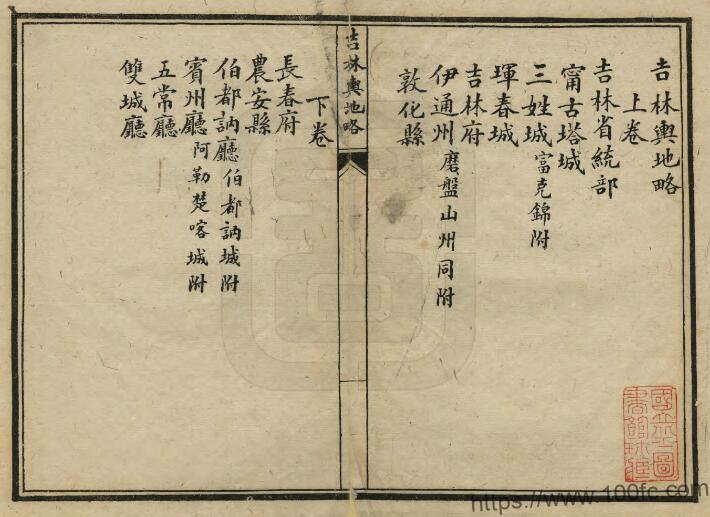 吉林輿地略
上卷
吉林省統部
甯古塔城
三姓城富克錦附
琿春城
吉林府
伊通州磨盤山州同附
敦化縣
吉林輿地略
下卷
長春府
農安縣
伯都訥廳伯都訥城附
賓州廳阿勒楚喀城附
五常廳
雙城廳
https://www.100fc.com